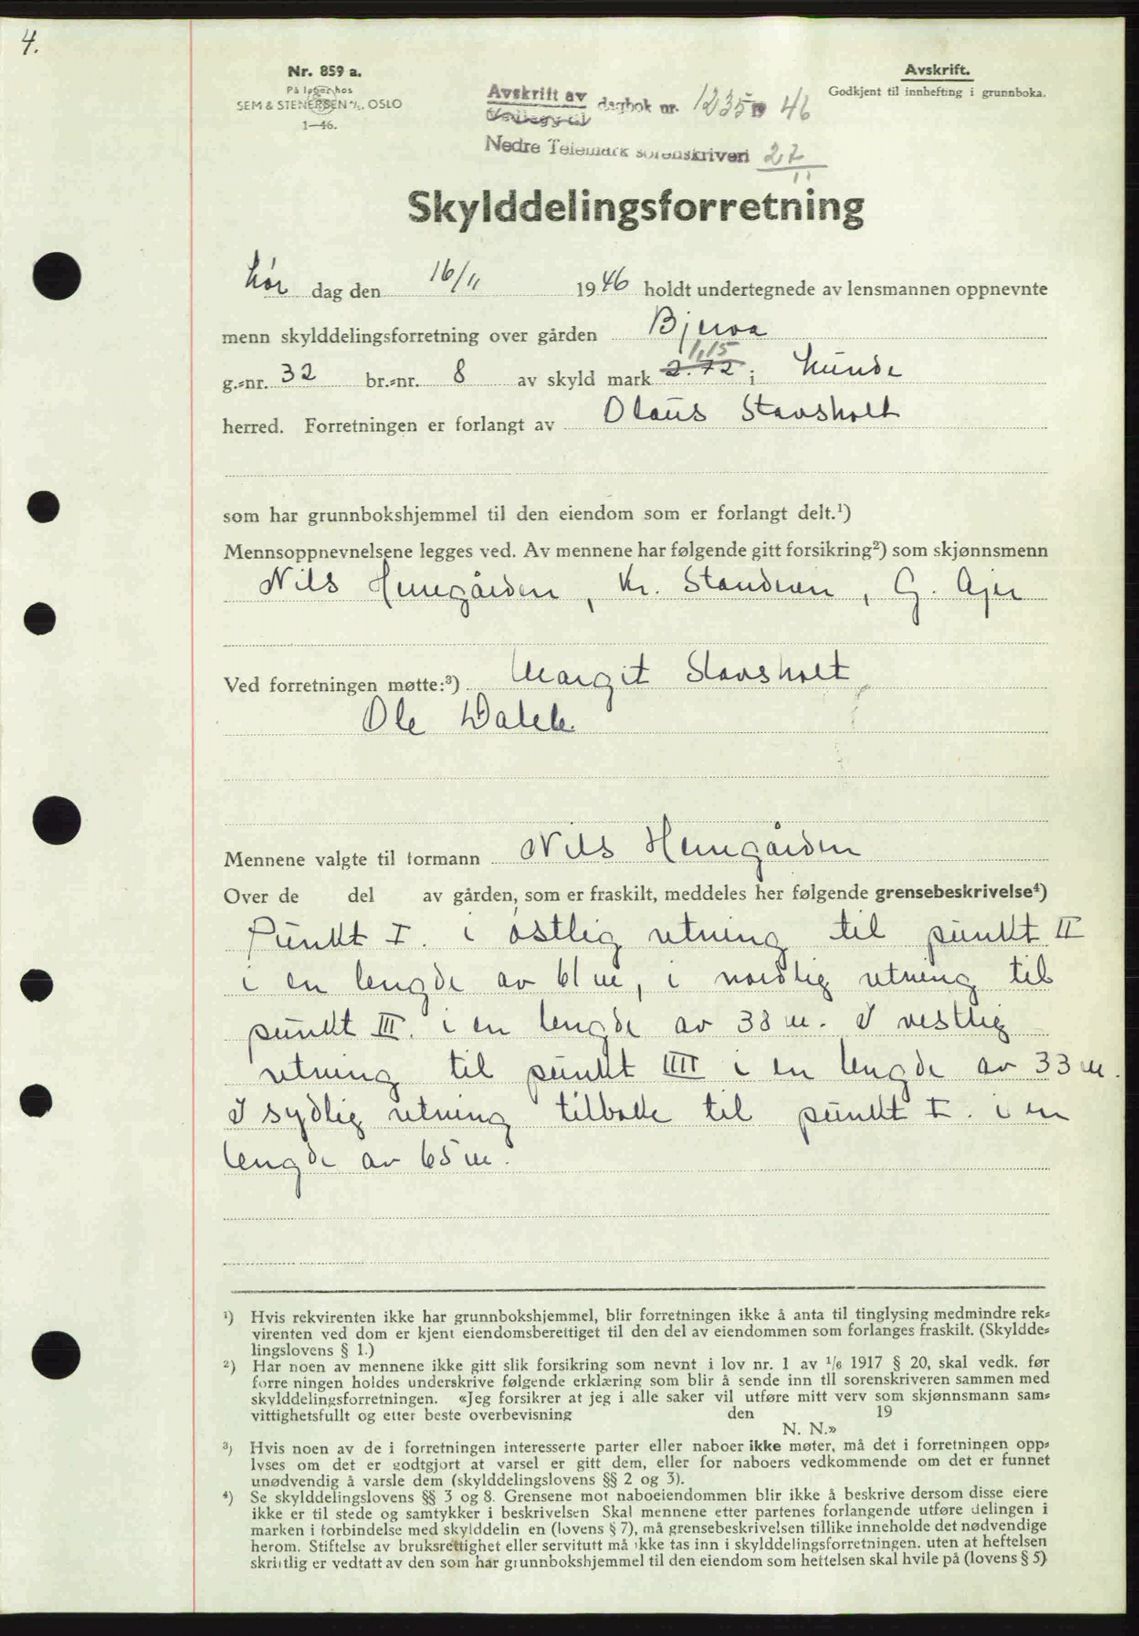 4.
Nr. 859 a.
På lager hos
SEM & STENERSEN A/S, OSLO
1—46.
Avskrift.
Godkjent til innhefting i grunnboka.
Avskrift av dagbok nr. 1235 19 46
Nedre Telemark sorenskriveri 27/11
Skylddelingsforretning
Lør dag den 16/11 1946 holdt undertegnede av lensmannen oppnevnte
menn skylddelingsforretning over gården Bjerva
1,15
g.-nr. 32 br.-nr. 8 av skyld mark 2.72 i Lunde
herred. Forretningen er forlangt av Olaus Stavsholt
som har grunnbokshjemmel til den eiendom som er forlangt delt.¹)
Mennsoppnevnelsene legges ved. Av mennene har følgende gitt forsikring²) som skjønnsmenn
Nils Heregården, Kr. G.
Ved forretningen møtte:³) Margit Stavsholt
Ole
Mennene valgte til formann Nils Heregården
Over de del av gården, som er fraskilt, meddeles her følgende grensebeskrivelse⁴)
Punkt I. i østlig retning til punkt II
i en lengde av 61 m, i nordlig retning til
punkt III. i en lengde av 38 m. I vestlig
retning til punkt IIII i en lengde av 33 m.
I sydlig retning tilbake til punkt I. i en
lengde av 65 m.
¹) Hvis rekvirenten ikke har grunnbokshjemmel, blir forretningen ikke å anta til tinglysing medmindre rek-
virenten ved dom er kjent eiendomsberettiget til den del av eiendommen som forlanges fraskilt. (Skyldde-
lingslovens § 1.)
²) Har noen av mennene ikke gitt slik forsikring som nevnt i lov nr. 1 av 1/6 1917 § 20, skal vedk. før
forre ningen holdes underskrive følgende erklæring som blir å sende inn til sorenskriveren sammen med
skylddelingsforretningen. «Jeg forsikrer at jeg i alle saker vil utføre mitt verv som skjønnsmann sam-
vittighetsfullt og etter beste overbevisning den 19
N. N.»
³) Hvis noen av de i forretningen interesserte parter eller naboer ikke møter, må det i forretningen opp-
lyses om det er godtgjort at varsel er gitt dem, eller for naboers vedkommende om det er funnet
unødvendig å varsle dem (skylddelingslovens §§ 2 og 3).
⁴) Se skylddelingslovens §§ 3 og 8. Grensene mot naboeiendommen blir ikke å beskrive dersom disse eiere
ikke er til stede og samtykker i beskrivelsen Skal mennene etter partenes forlangende utføre delingen i
marken i forbindelse med skylddelin en (lovens § 7), må grensebeskrivelsen tillike inneholde det nødvendige
herom. Stiftelse av bruksrettighet eller servitutt må ikke tas inn i skylddelingsforretningen. uten at heftelsen
skriftlig er vedtatt av den som har grunnbokshjemmel til den eiendom som heftelsen skal hvile på (lovens § 5)